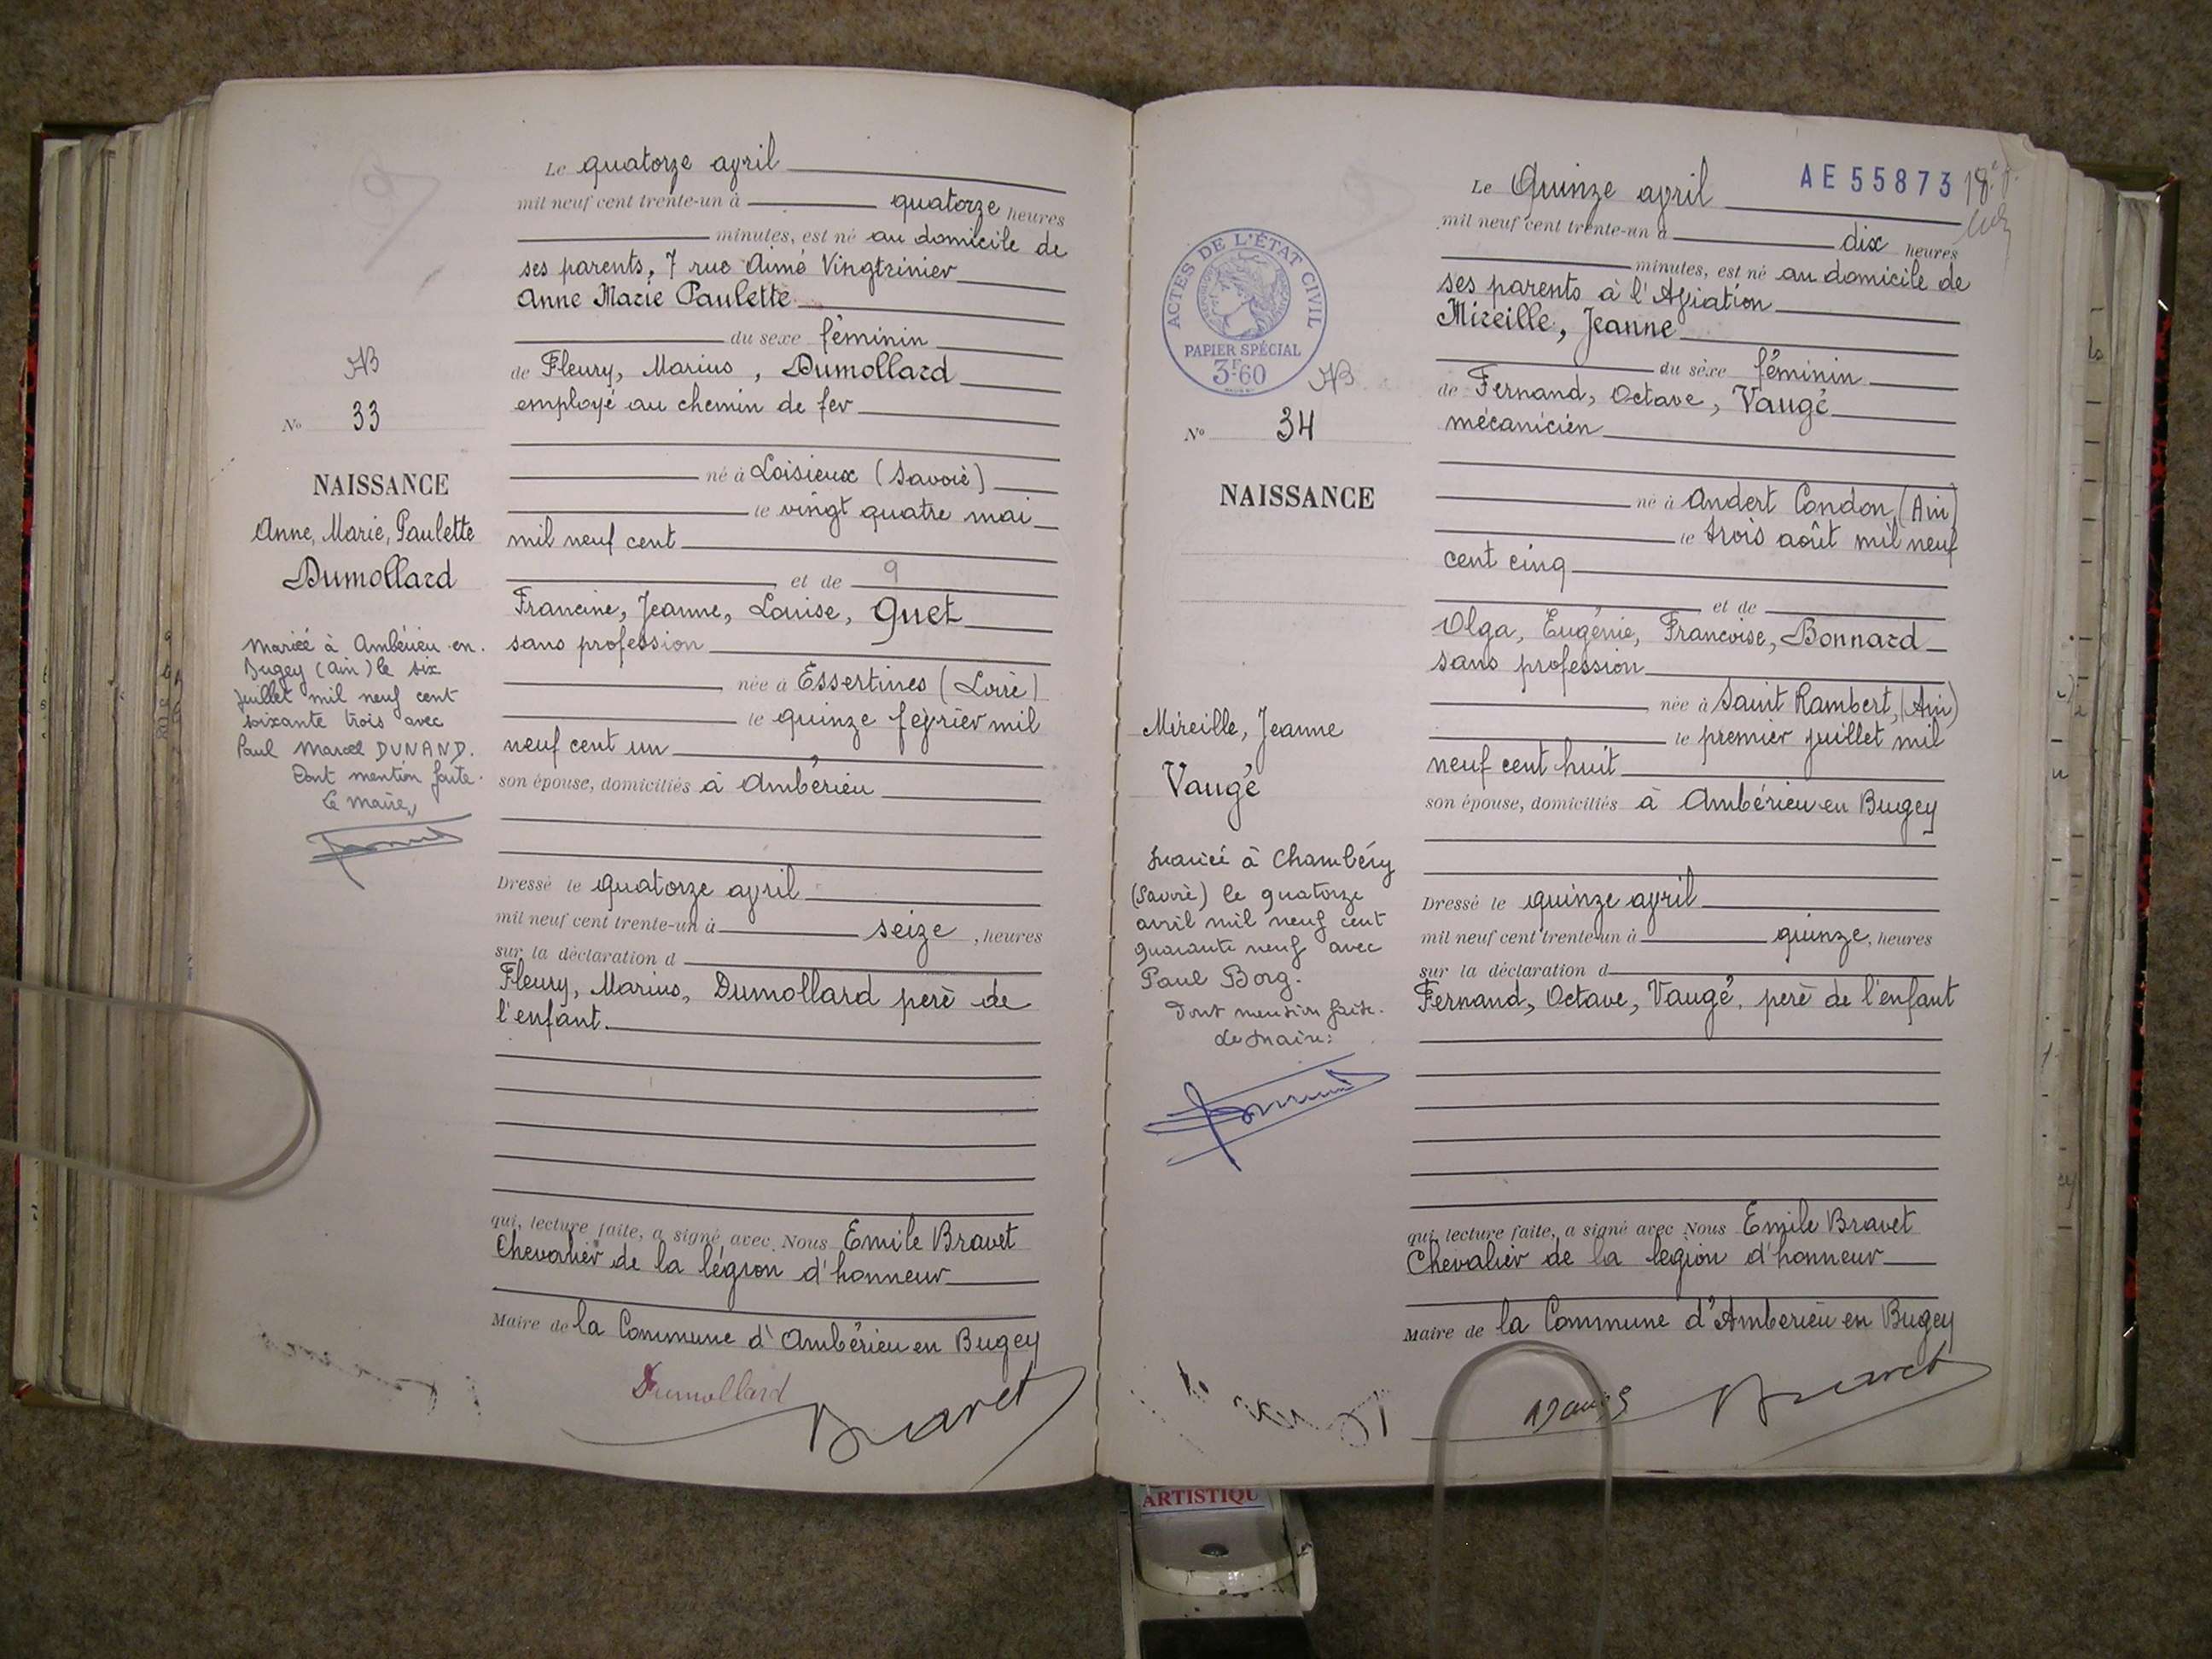 Le quatorze avril
mil neuf cent trente-un à quatorze heures
minutes, est né au domicile de
ses parents, 7 rue Aimé Vingtrinier
Anne Marie Paulette
du sexe féminin
de Fleury, Marius, Dumollard
employé au chemin de fer
né à Loisieux (Savoie)
le vingt quatre mai
mil neuf cent
et de
Francine, Jeanne, Louise, Guet
sans profession
née à Essertines (Loire)
le quinze février mil
neuf cent un
son épouse, domiciliés à Ambérieu
Dressé le quatorze avril
mil neuf cent trente-un à seize, heures
sur la déclaration d
Fleury, Marius, Dumollard père de
l'enfant.
qui, lecture faite, a signé avec Nous Emile Bravet
Chevalier de la légion d'honneur
Maire de la Commune d'Ambérieu en Bugey
Dumollard
Bravet
No 33
NAISSANCE
Anne, Marie, Paulette
Dumollard
Mariée à Ambérieu-en-
Bugey (Ain) le six
juillet mil neuf cent
soixante trois avec
Paul Marcel DUNAND.
Dont mention faite.
Le maire,
AE 55873
Le Quinze avril
mil neuf cent trente-un à dix heures
minutes, est né au domicile de
ses parents à l'Aviation
Mireille, Jeanne
du sexe féminin
de Fernand, Octave, Vaugé
mécanicien
né à Andert Condon (Ain)
le trois août mil neuf
cent cinq
et de
Olga, Eugénie, Françoise, Bonnard
sans profession
née à Saint Rambert, (Ain)
le premier juillet mil
neuf cent huit
son épouse, domiciliés à Ambérieu en Bugey
Dressé le quinze avril
mil neuf cent trente-un à quinze, heures
sur la déclaration d
Fernand, Octave, Vaugé, père de l'enfant
qui, lecture faite, a signé avec Nous Emile Bravet
Chevalier de la légion d'honneur
Maire de la Commune d'Amberieu en Bugey
Bravet
ACTES DE L'ÉTAT CIVIL
PAPIER SPÉCIAL
3F60
No 34
NAISSANCE
Mireille, Jeanne
Vaugé
Mariée à Chambéry
(Savoie) le quatorze
avril mil neuf cent
quarante neuf avec
Paul Borg.
Dont mention faite.
Le Maire:
ARTISTIQU